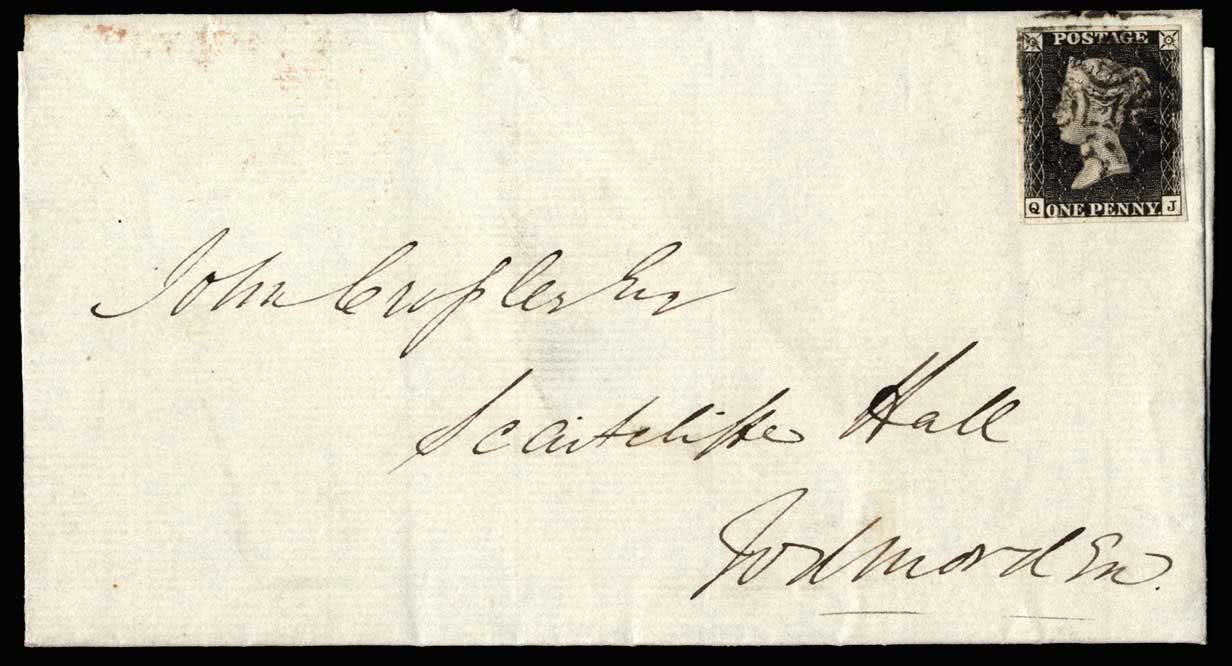 POSTAGE
Q ONE PENNY J
John Crossley Esq
Scaitcliffe Hall
Todmorden